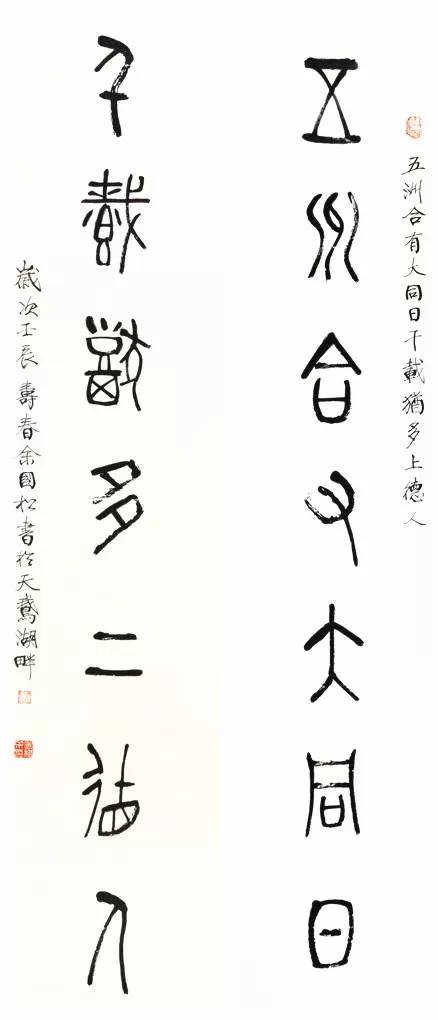 五洲合有大同日千載猶多上德人
五洲合有大同日
千載猶多上德人
歲次壬辰壽春余國松書於天鵝湖畔